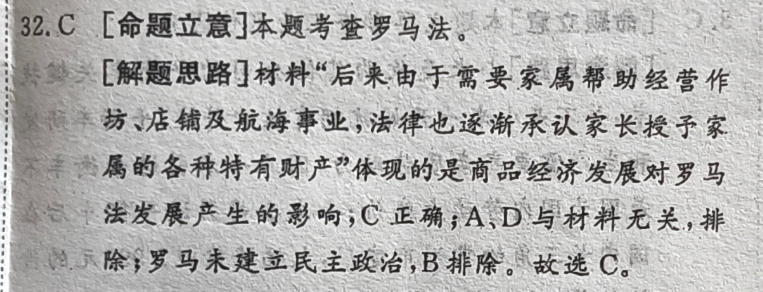 32.C [命题立意]本题考查罗马法。
[解题思路]材料“后来由于需要家属帮助经营作
坊、店铺及航海事业,法律也逐渐承认家长授予家
属的各种特有财产”体现的是商品经济发展对罗马
法发展产生的影响;C正确;A、D与材料无关,排
除;罗马未建立民主政治,B排除。故选C。